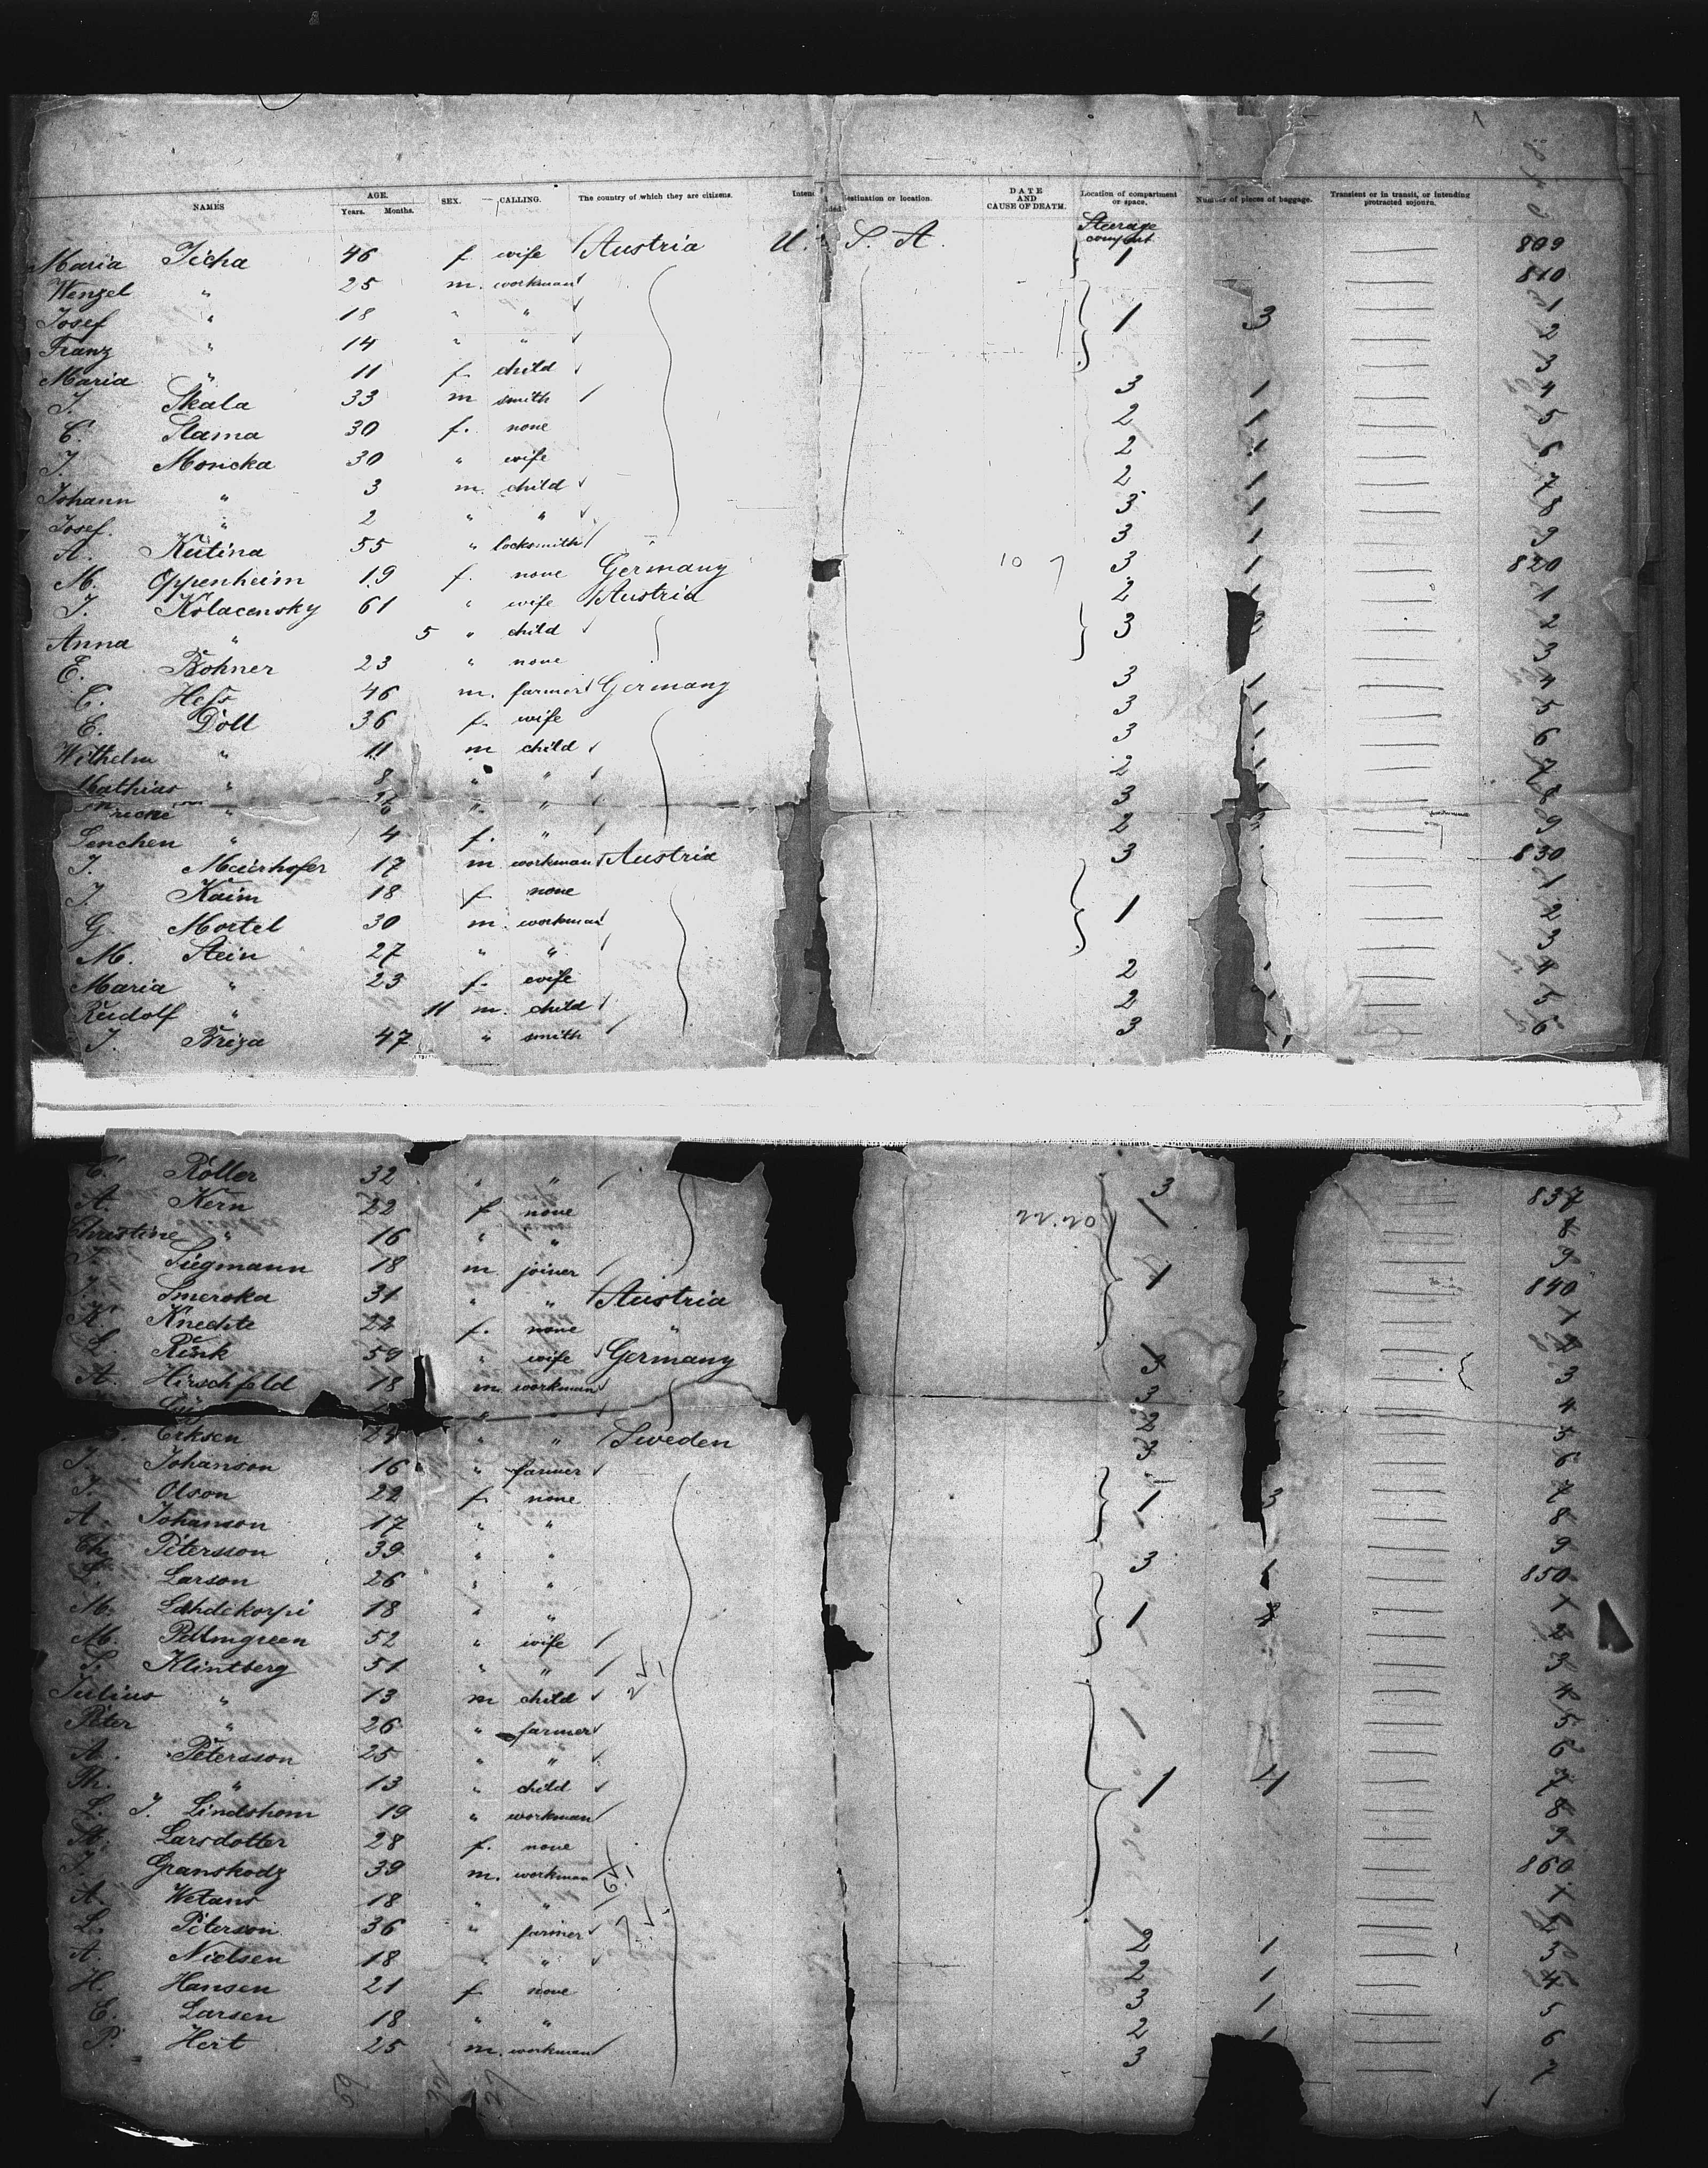 NAMES AGE. Years. Months. SEX. CALLING. The country of which they are citizens. Intended destination or location. DATE AND CAUSE OF DEATH. Location of compartment or space. Number of pieces of baggage. Transient or in transit, or intending protracted sojourn.
Steerage
Maria Ticha 46 f wife Austria U. S. A. 1 809
Wenzel " 25 m. workman 810
Josef " 18 " " 1 3 1
Franz " 14 " " 2
Maria " 11 f. child 3
J. Skala 33 m smith 3 1 4
C. Slama 30 f. none 2 1 5
J. Moricka 30 " wife 2 1 6
Johann " 3 m. child 2 1 7
Josef " 2 " " 3 1 8
A. Kutina 55 " locksmith 3 1 9
M. Oppenheim 19 f. none Germany 3 1 820
J. Kolacensky 61 " wife Austria 2 1 1
Anna " 5 " child 3 2
E. Bohner 23 " none 3
C. Hess 46 m. farmer Germany 3 1 4
E. Doll 36 f. wife 3 1 5
Wilhelm " 11 m child 3 6
Mathias " 8 " " 2 7
" " " 3 8
Lenchen " 4 f. " 2 9
J. Maierhofer 17 m workman Austria 3 830
J. Kaim 18 f none 1
G. Mortel 30 m. workman 1 2
M. Stein 27 " " 3
Maria " 23 f. wife 2 4
Rudolf " 11 m. child 2 5
J. Briza 47 " smith 3 6
C. Roller 32 " " 3 837
A. Kern 22 f none 8
Christine " 16 " " 9
Siegmann 18 m. joiner 1 840
J. Smerska 31 " " Austria 1
K. Knechte 22 f. none " 2
L. Rink 59 " wife Germany 3 3
A. Hirschfeld 18 m. workman 3 4
" " 2 5
Erksen " " Sweden 3 6
J. Johanson 16 " farmer 7
J. Olson 22 f. none 1 3 8
A. Johanson 17 " " 9
Ch. Petersson 39 " " 3 1 850
Larson 26 " " 1
M. Lahdekorpi 18 " " 1 2
M. Pallmgreen 52 " wife 3
S. Klintberg 51 " " 4
Julius " 13 m child 5
Peter " 26 " farmer 6
A. Petersson 25 " " 7
Th. " 13 " child 1 4 8
L. J. Lindshom 19 " workman 9
M. Larsdotter 28 f. none 860
J. Granskodz 39 m. workman 1
A. Wetans 18 " " 2
L. Peterson 36 " farmer 2 1 3
A. Nielsen 18 " " 2 1 4
H. Hansen 21 f none 3 1 5
E. Larsen 18 " " 2 1 6
P. Hert 25 m. workman 3 7